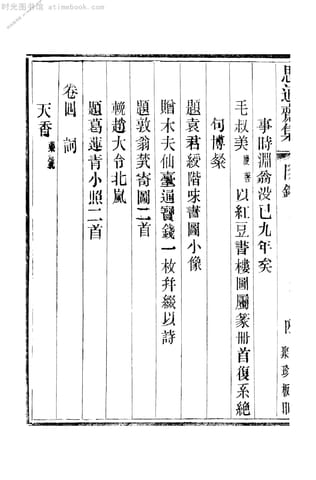 时光图书馆 atimebook.com
思適齋集 目錄
聚珍板印
事時淵翁沒已九年矣
毛叔美以紅豆書樓圖屬篆冊首復系絕
句博粲
題袁君綬階味書圖小像
贈木夫仙臺通寶錢一枚并綴以詩
題敦翁寄圖二首
輓趙大令北嵐
題葛蓮青小照二首
卷四 詞
天香